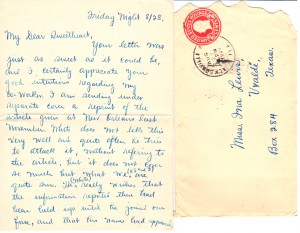 Friday Night 8/28.
My Dear Sweetheart,
Your letter was
just as sweet as it could be,
and I certainly appreciate your
good intentions regarding my
I am sending under
separate cover a reprint of the
article given at New Orleans last
November. What does not tell this
very well and quite often he tries
to attack it, without referring to
the article, but it does not
so much but what we are
quite sure. He really wishes that
the information reported there had
been held up until he joined our
force, and that his name had appeared
Miss Ina Lewis
Uvalde,
Texas.
Box 284